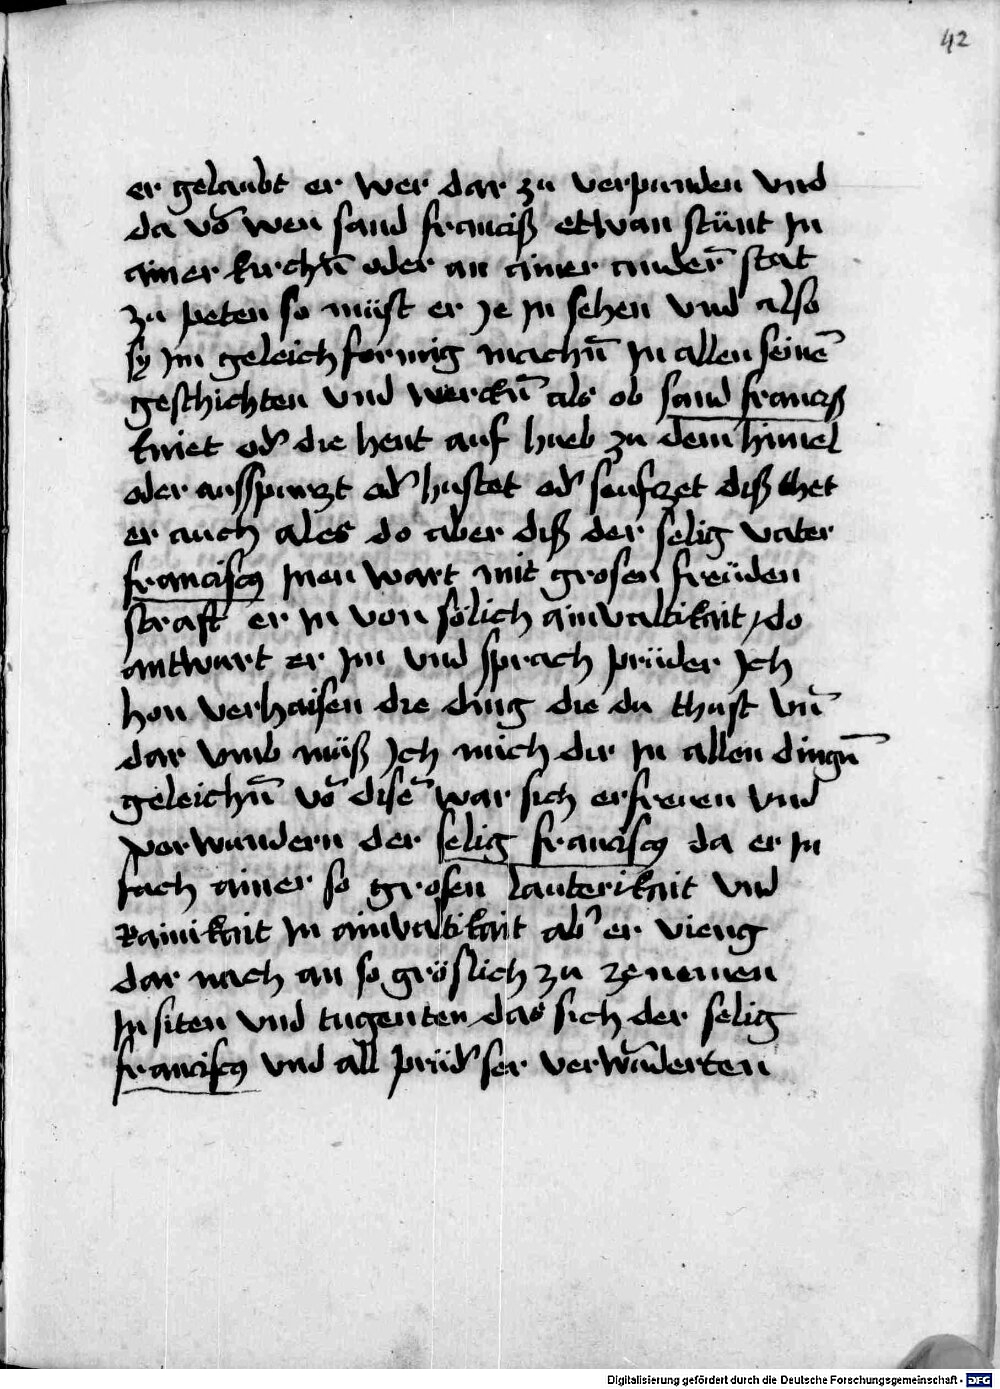 42
er gelaubt er wer dar zu verpunden vnd
da vō wen sand franciß etwan stünt In
ainer kirchn̄ oder an ainer anderr̄ stat
zu peten so müst er Je In sehen vnd also
sy Im geleich formig machn̄ In allen seinē
geschichten vnd werckn̄ als ob sand franciß
kniet od' die hent auf hueb zu dem himel
oder ausspurzt od' hustet od' seufzet diß thet
er auch ales do aber diß der selig vater
franciscꝰ Inen wart mit grosen freüden
straft er In von sölich ainvaltikait / do
antwurt er Im vnd sprach prüder Ich
hon verhaisen die ding die du thust vn̄
dar vmb müß Ich mich dir In allen dingn̄
geleichn̄ vō disē war sich erfreuen vnd
vorwundern der selig franciscꝰ da er In
sach ainer so grosen lauterikait vnd
Rainikait In ainvaltikait ab' er vieng
dar nach an so gröslich zu zenemen
In siten vnd tugenten das sich der selig
franciscꝰ vnd all prüd' ser verwūderten
Digitalisierung gefördert durch die Deutsche Forschungsgemeinschaft - DFG